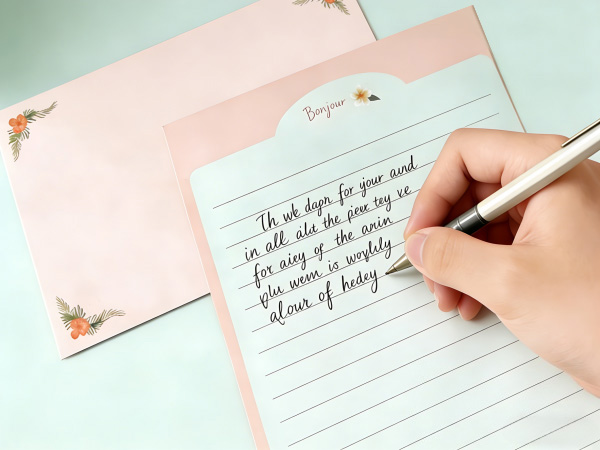 Bonjour
Th wk dapn for your aund
in all aldt the peex tey ve
for aiey of the anin
plu wem is woylyly
alour of hedey